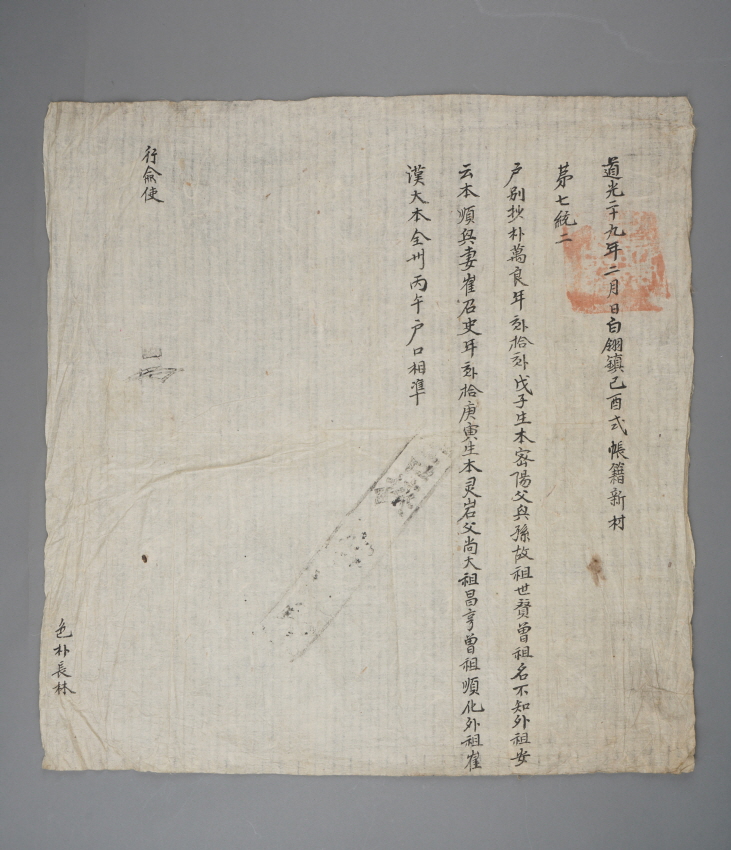 道光二十九年二月日白翎鎮己酉式帳籍新村
第七統二
戶別抄朴萬良年 拾 戊子生本密陽父與孫故祖世贊曾祖名不知外祖安
云本順興妻崔召史年 拾庚寅生本灵岩父尚大祖昌亨曾祖順化外祖崔
漢大本全州丙午戶口相凖
行僉使
色朴長林